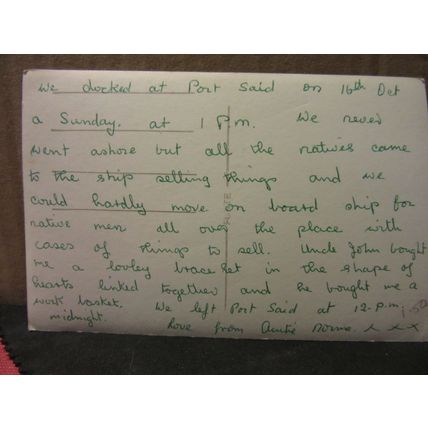 We docked at Port Said on 16th Oct
a Sunday. at 1 Pm. We never
went ashore but all the natives came
to the ship selling things and we
could hardly move on board ship for
native men all over the place with
cases of things to sell. Uncle John bought
me a lovley bracelet in the shape of
hearts linked together and he bought me a
work basket. We left Port Said at 12-P.m.
midnight. Love from Auntie Norma. x x x